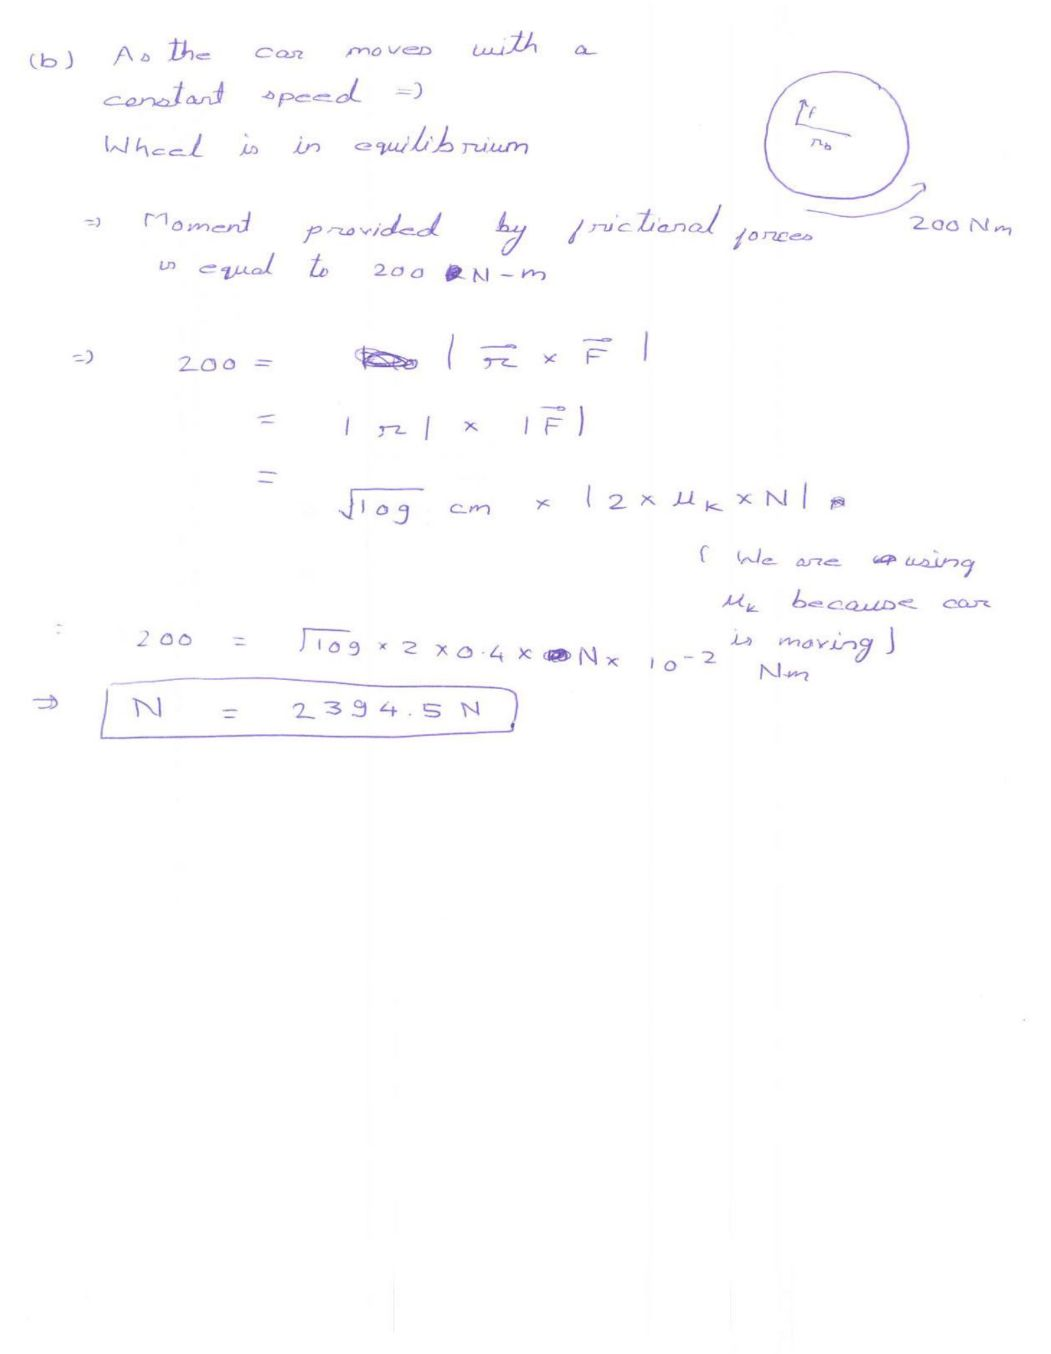 (b) As the car moves with a
constant speed =>
Wheel is in equilibrium
=> Moment provided by frictional forces
is equal to 200 N-m
F
r_b
200 Nm
=> 200 = | r⃗ × F⃗ |
= | r | × | F⃗ |
= √109 cm × | 2 × μ_K × N |
( We are using
μ_k because car
is moving )
: 200 = √109 × 2 × 0.4 × N × 10^-2 Nm
=> N = 2394.5 N